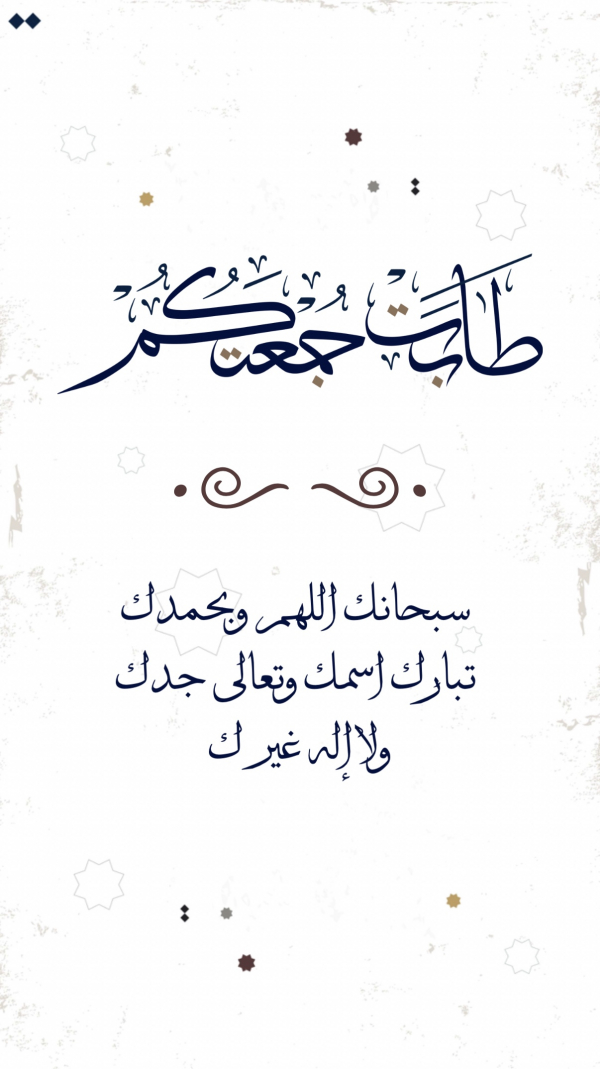 طابت جمعتكم
سبحانك اللهم وبحمدك
تبارك اسمك وتعالى جدك
ولا إله غيرك